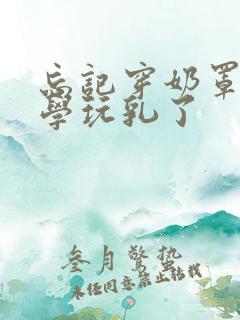 忘記穿奶罩
學玩乳了
叁月驚蟄
未经同意禁止转载